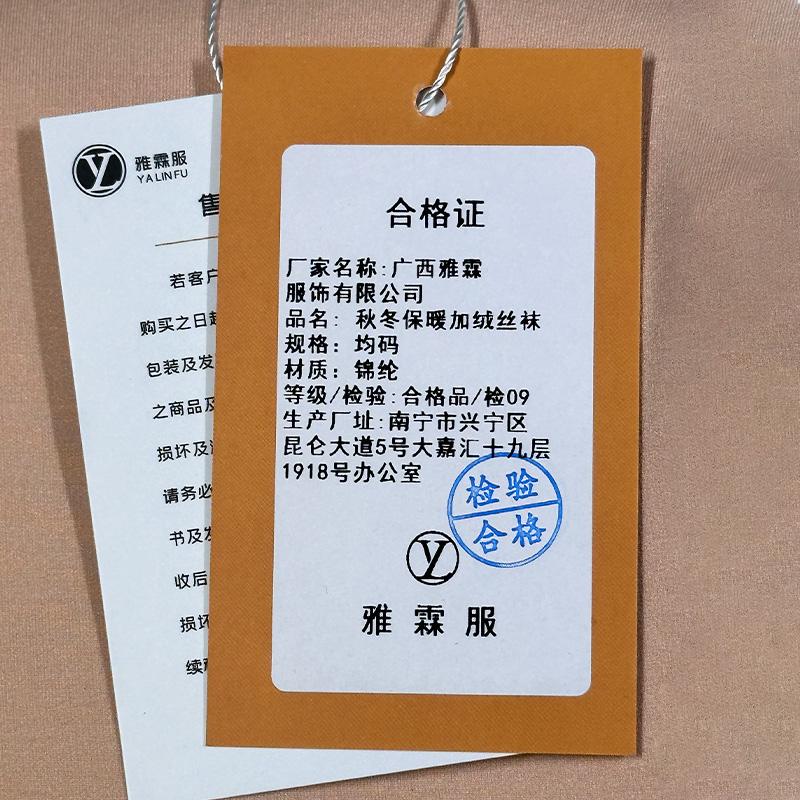 雅霖服
YALINFU
售
若客户
购买之日起
包装及发
之商品及
损坏及
请务必
书及发
收后
损坏
续
合格证
厂家名称:广西雅霖
服饰有限公司
品名: 秋冬保暖加绒丝袜
规格: 均码
材质: 锦纶
等级/检验:合格品/检09
生产厂址:南宁市兴宁区
昆仑大道5号大嘉汇十九层
1918号办公室
检验
合格
Y
雅霖服